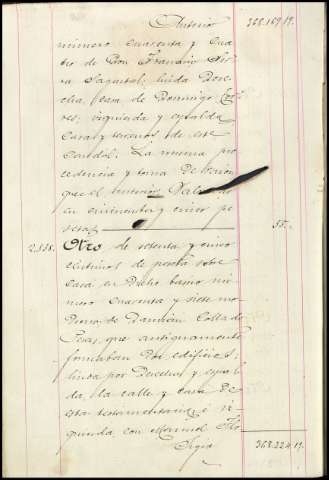 Anterior 368.169.19.
número cuarenta y cua
tro de Don Francisco
linda Dere
cha, casa de Domingo
izquierda y espalda
casal y terrenos de este
caudal. La misma pro
cedencia y toma de razon
que el anterior. Vale
en cincuenta y cinco pe
setas 55.
2,838. Otro de setenta y cinco
céntimos de peseta sobre
casa en dicho barrio nú
mero cuarenta y siete mo
derno de Damián Collazo
que antiguamente
formaban dos edificios,
linda por Derecha y espal
da, la calle y casa de
esta testamentaria é iz
quierda, con Manuel
Sigue 368.224.19.